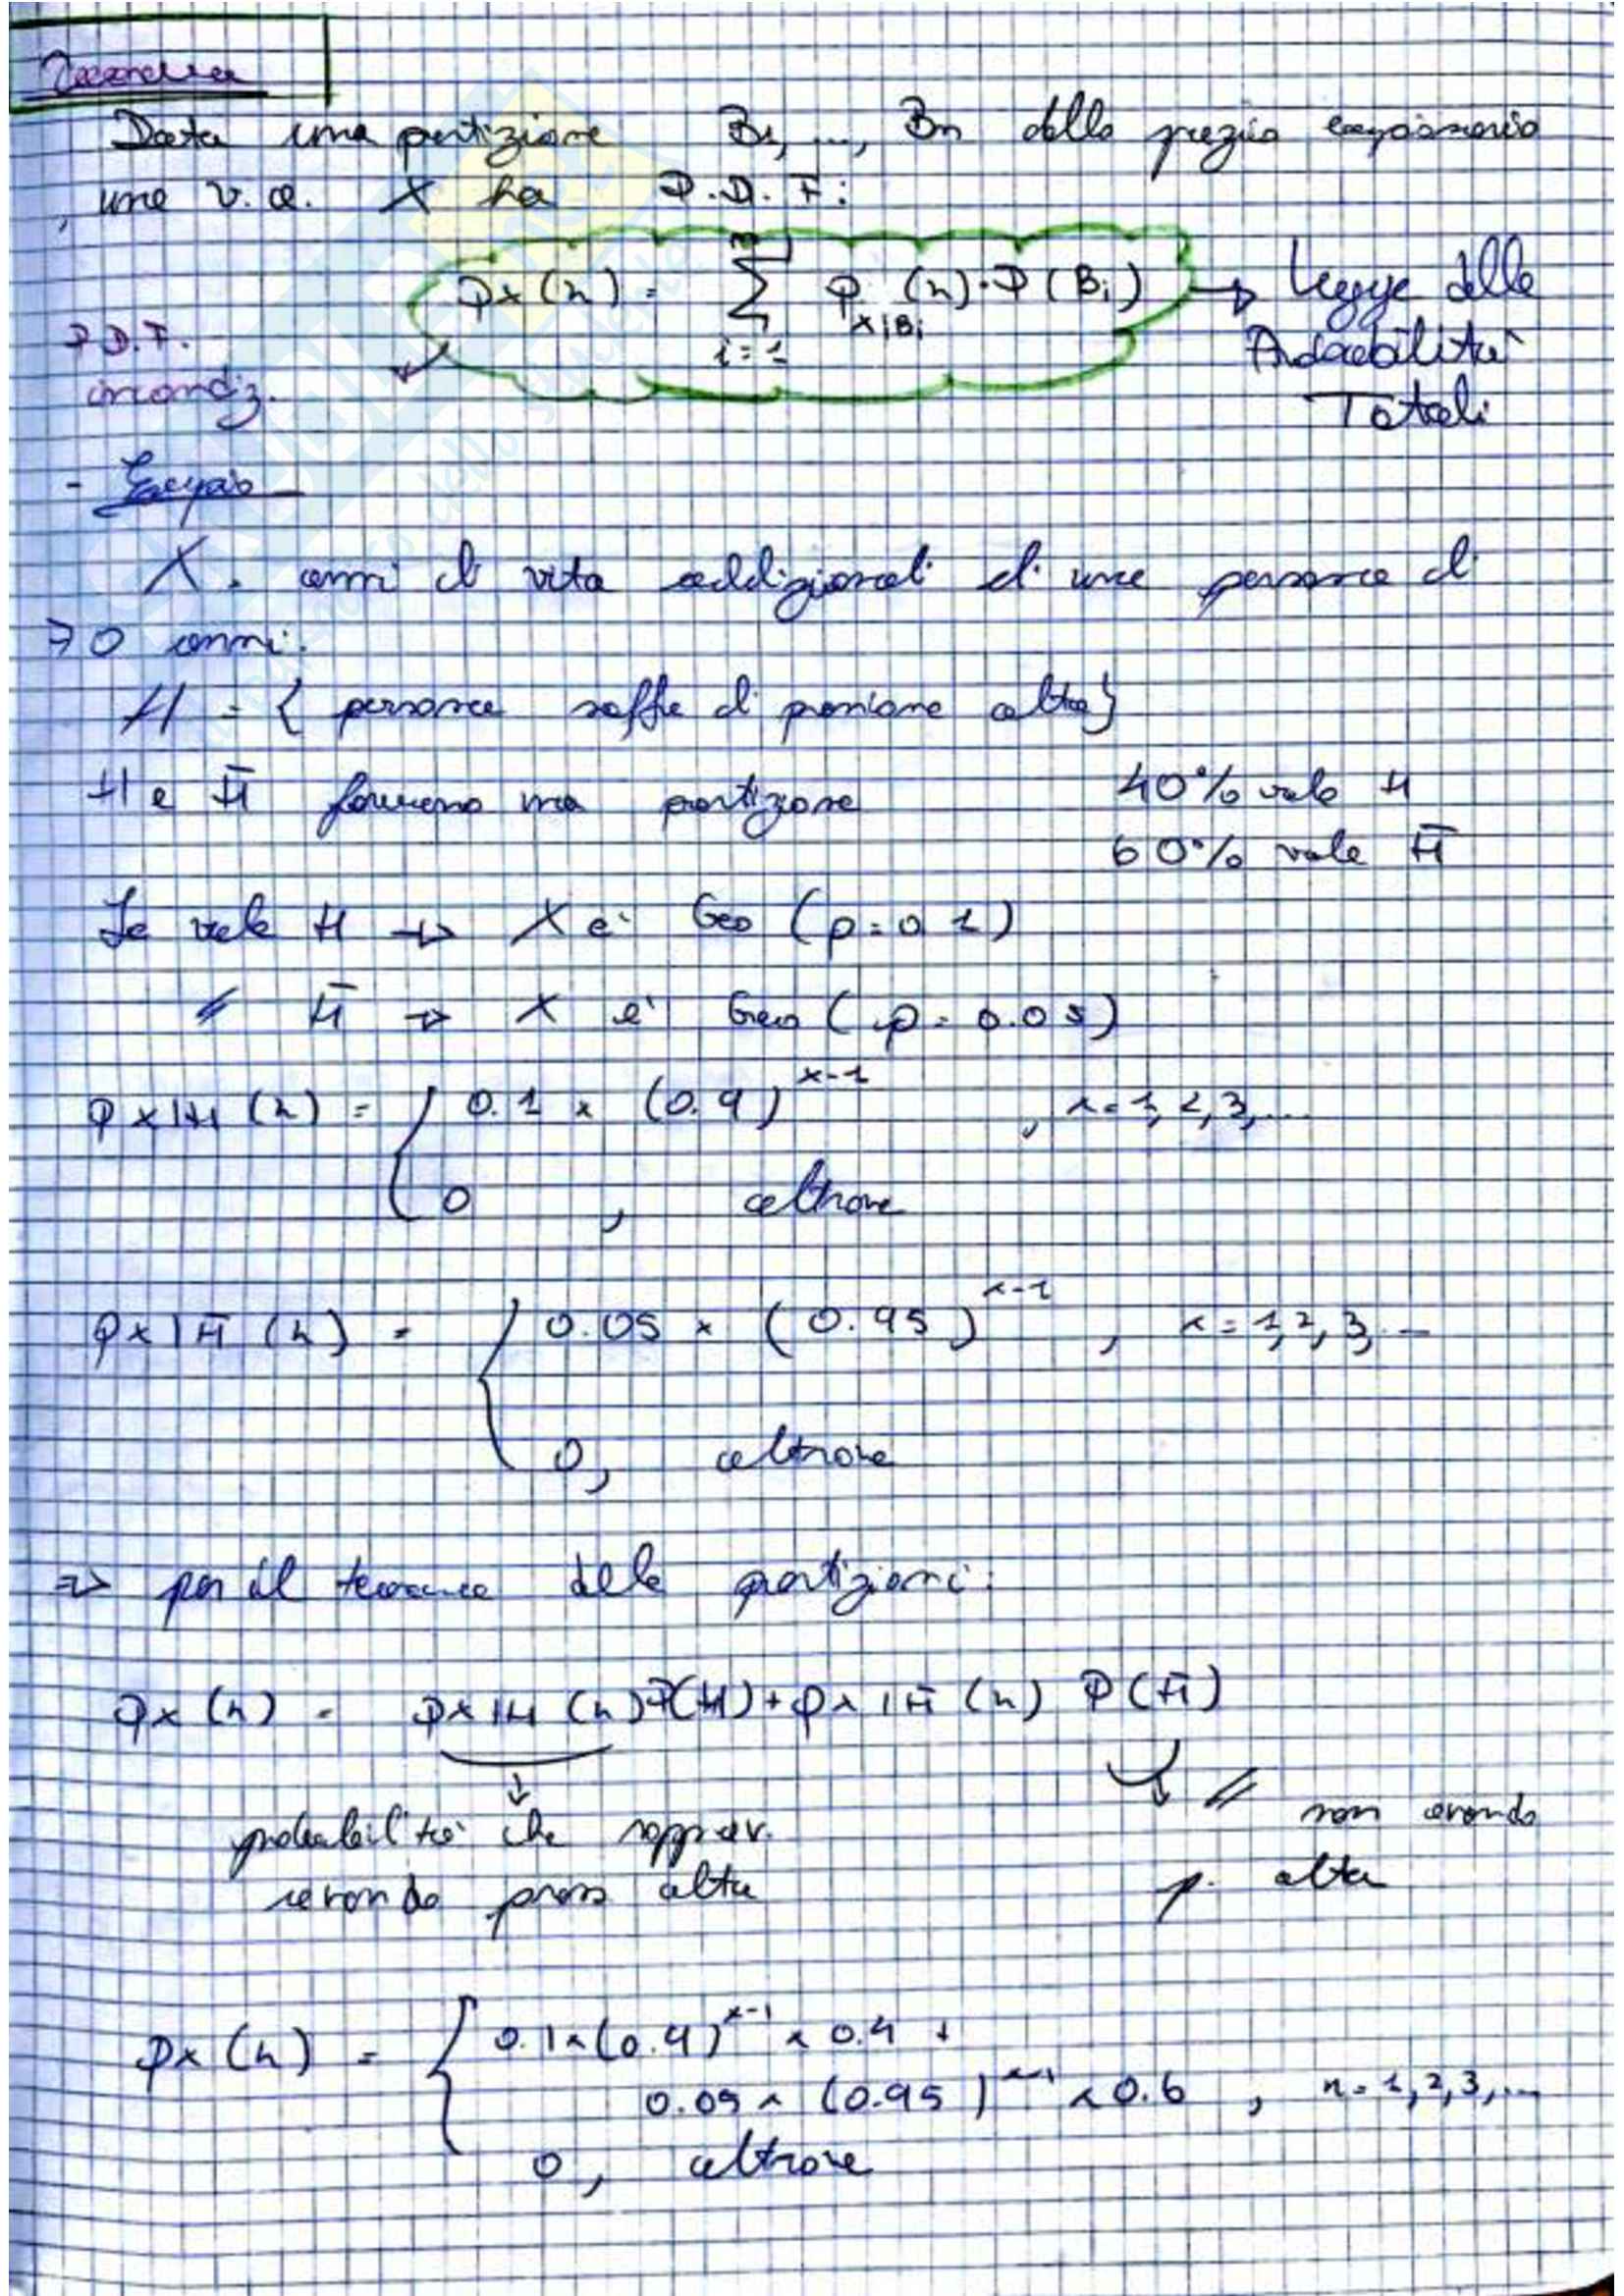 Teorema
Data una partizione B1, ..., Bn dello spazio campionario
, una v.a. X ha P.D.F.:
Px(x) = Σ(i=1..n) P x|Bi (x) · P(Bi) → Legge delle
P.D.F. Probabilità
incondiz. Totali
- Esempio
X = anni di vita addizionali di una persona di
70 anni.
H = { persona soffre di pressione alta}
H e H̄ formano una partizione 40% vale H
60% vale H̄
Se vale H → X è Geo (p=0.1)
〃 H̄ → X è Geo (p=0.05)
Px|H (x) = { 0.1 × (0.9)^x-1 , x=1,2,3,...
0 , altrove
Px|H̄ (x) = { 0.05 × (0.95)^x-1 , x=1,2,3,...
0, altrove
⇒ per il teorema delle partizioni:
Px(x) = Px|H (x) P(H) + Px|H̄ (x) P(H̄)
↓ 〃 non avendo
probabilità che soppravv. p. alta
avendo press alta
Px(x) = { 0.1×(0.9)^x-1 × 0.4 +
0.05 × (0.95)^x-1 × 0.6 , x=1,2,3,...
0, altrove